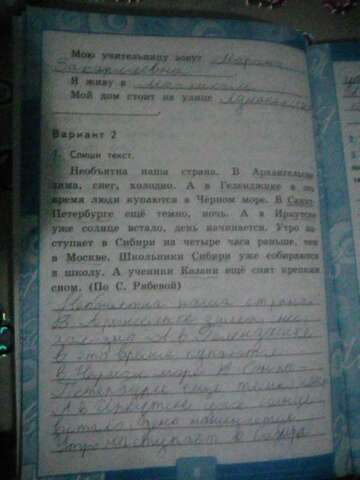 Мою учительницу зовут Марина
Закарилевна
Я живу в
Мой дом стоит на улице
Вариант 2
1. Спиши текст.
Необъятна наша страна. В Архангельске
зима, снег, холодно. А в Геленджике в это
время люди купаются в Чёрном море. В Санкт-
Петербурге ещё темно, ночь. А в Иркутске
уже солнце встало, день начинается. Утро на-
ступает в Сибири на четыре часа раньше, чем
в Москве. Школьники Сибири уже собираются
в школу. А ученики Казани ещё спят крепким
сном. (По С. Рябевой)
наша страна
В зима
А в Геленджике
в это время купаются
в Чёрном море В Санкт-
Петербурге ещё темно
А в Иркутске уже солнце
встало день
Утро наступает в